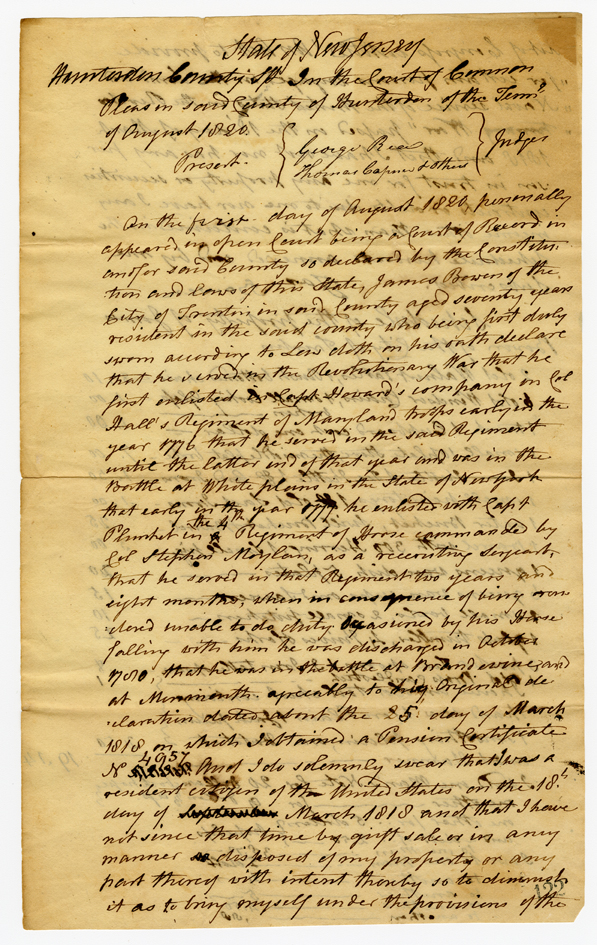 State of New Jersey
Hunterdon County Ss. In the Court of Common
Pleas in said County of Hunterdon of the Term
of August 1820.
Present. { George Rea
Thomas Capner & others } Judges
On the first day of August 1820, personally
appeared in open Court being a Court of Record in
and for said County so declared by the Constitu
tion and Laws of this State, James Bowen of the
City of Trenton in said County aged seventy years
resident in the said county who being first duly
sworn according to Law doth on his oath declare
that he served in the Revolutionary War that he
first enlisted in Capt Howard's company in Col
Hall's Regiment of Maryland troops early in the
year 1776 that he served in the said Regiment
until the latter end of that year and was in the
Battle at White plains in the State of New York
that early in the year 1777 he enlisted with Capt
Plunket in the 4th Regiment of Horse commanded by
Col Stephen Moylan, as a recruiting Sergeant,
that he served in that Regiment two years and
eight months, when in consequence of being ren
dered unable to do duty occasioned by his Horse
falling with him he was discharged in October
1780, that he was in the battle at Brandewine, and
at Monmouth agreeably to his Original de
claration dated about the 25th day of March
1818 on which I obtained a Pension Certificate
No 4957 And I do solemnly swear that I was a
resident citizen of the United States on the 18th
day of March 1818 and that I have
not since that time by gift sale or in any
manner disposed of my property or any
part thereof with intent thereby so to diminish
it as to bring myself under the provisions of the
122